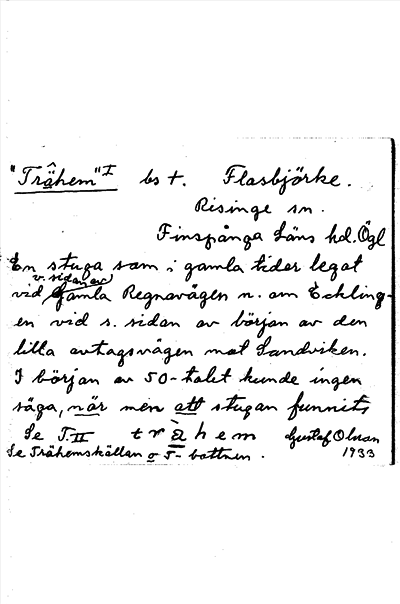 "Trähem" I bs t. Flasbjörke.
Risinge sn.
Finspånga Läns hd. Ögl
En stuga som i gamla tider legat
v. sidan av
vid Gamla Regnavägen n. om Eckling-
en vid s. sidan av början av den
lilla avtagsvägen mot Sandviken.
I början av 50-talet kunde ingen
säga, när men att stugan funnits
Se T. II trähem Gustaf Olsson
Se Trähemskällan o T- bottnen. 1933